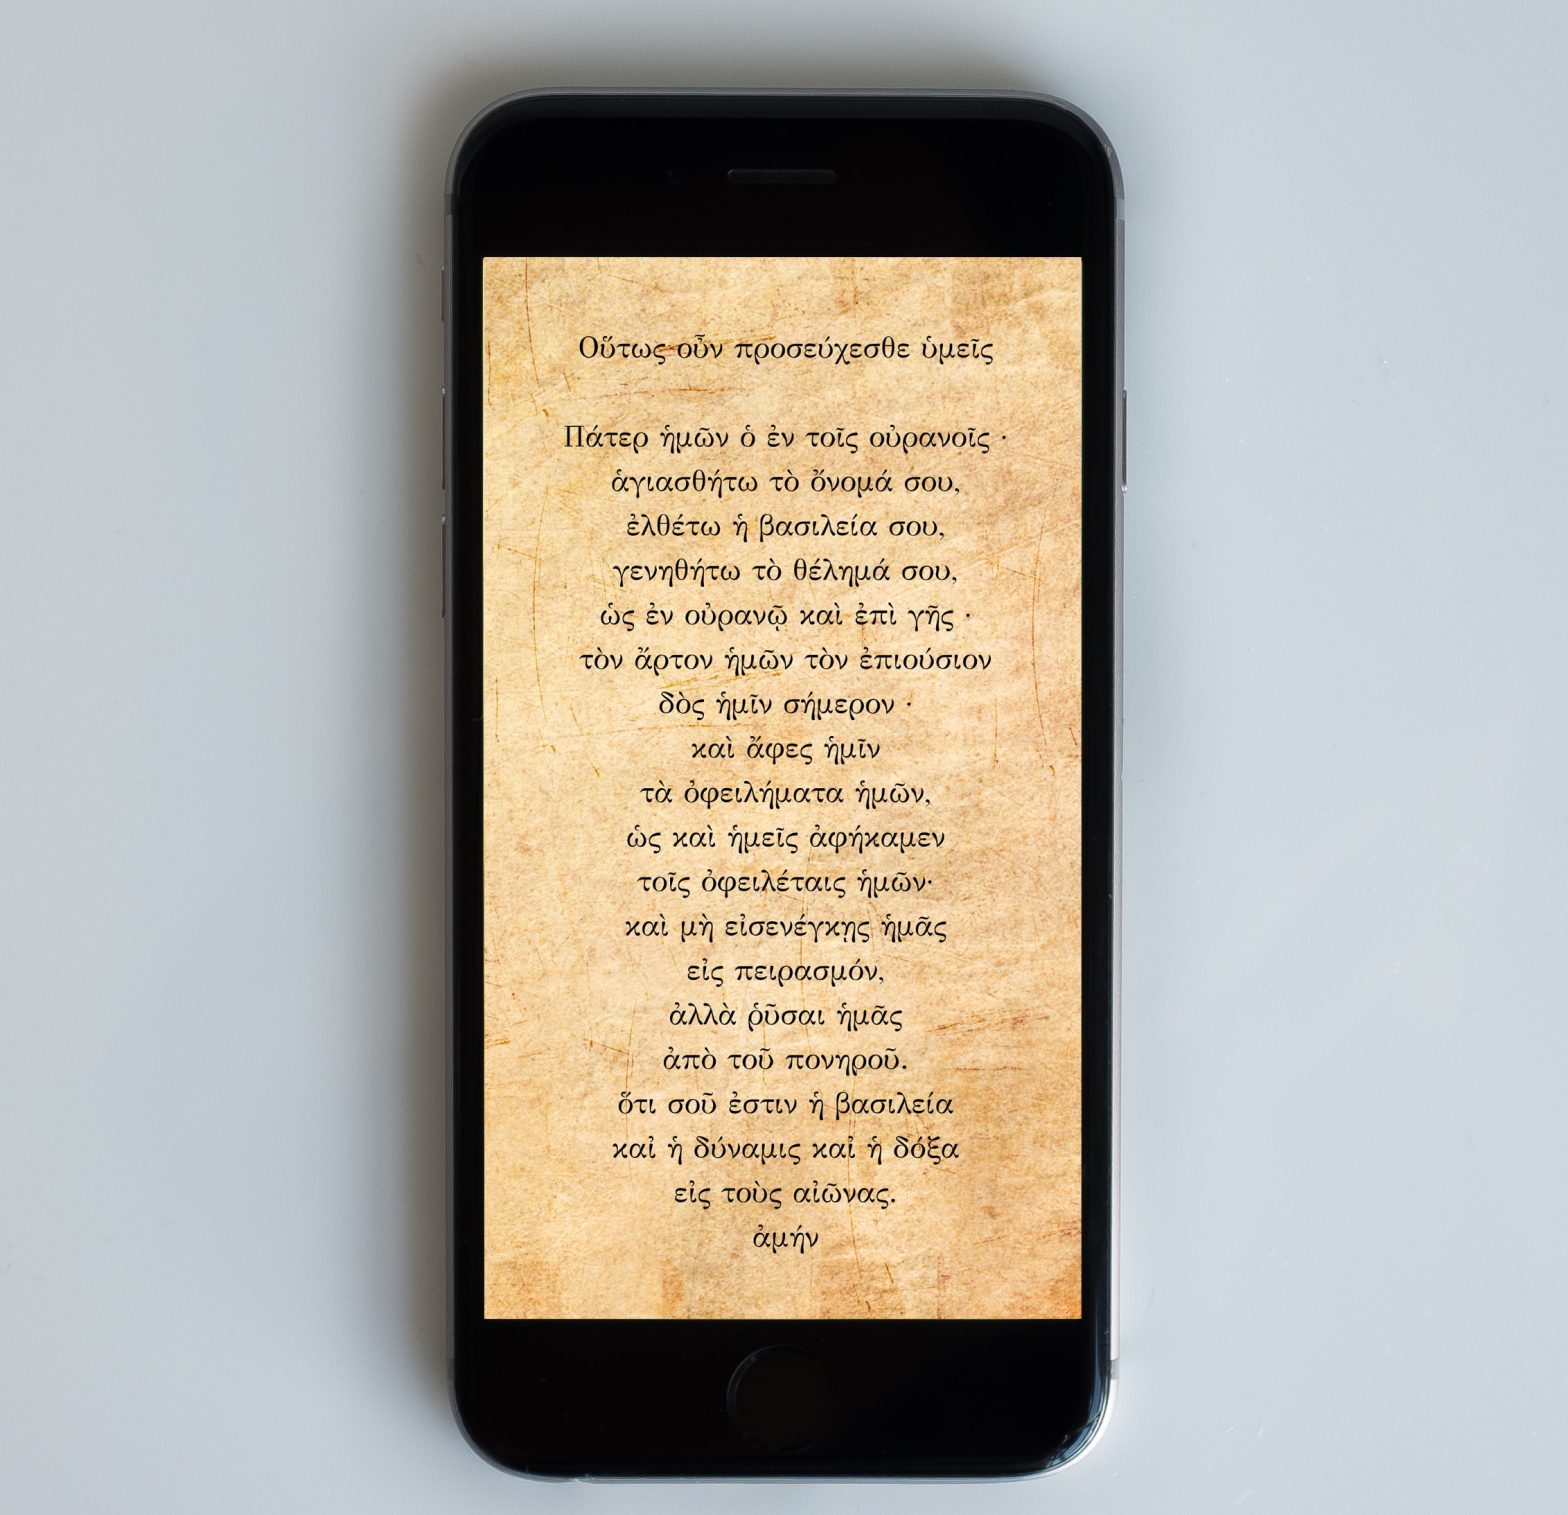 Οὕτως οὖν προσεύχεσθε ὑμεῖς
Πάτερ ἡμῶν ὁ ἐν τοῖς οὐρανοῖς ·
ἁγιασθήτω τὸ ὄνομά σου,
ἐλθέτω ἡ βασιλεία σου,
γενηθήτω τὸ θέλημά σου,
ὡς ἐν οὐρανῷ καὶ ἐπὶ γῆς ·
τὸν ἄρτον ἡμῶν τὸν ἐπιούσιον
δὸς ἡμῖν σήμερον ·
καὶ ἄφες ἡμῖν
τὰ ὀφειλήματα ἡμῶν,
ὡς καὶ ἡμεῖς ἀφήκαμεν
τοῖς ὀφειλέταις ἡμῶν·
καὶ μὴ εἰσενέγκῃς ἡμᾶς
εἰς πειρασμόν,
ἀλλὰ ῥῦσαι ἡμᾶς
ἀπὸ τοῦ πονηροῦ.
ὅτι σοῦ ἐστιν ἡ βασιλεία
καἰ ἡ δύναμις καἰ ἡ δόξα
εἰς τοὺς αἰῶνας.
ἀμήν